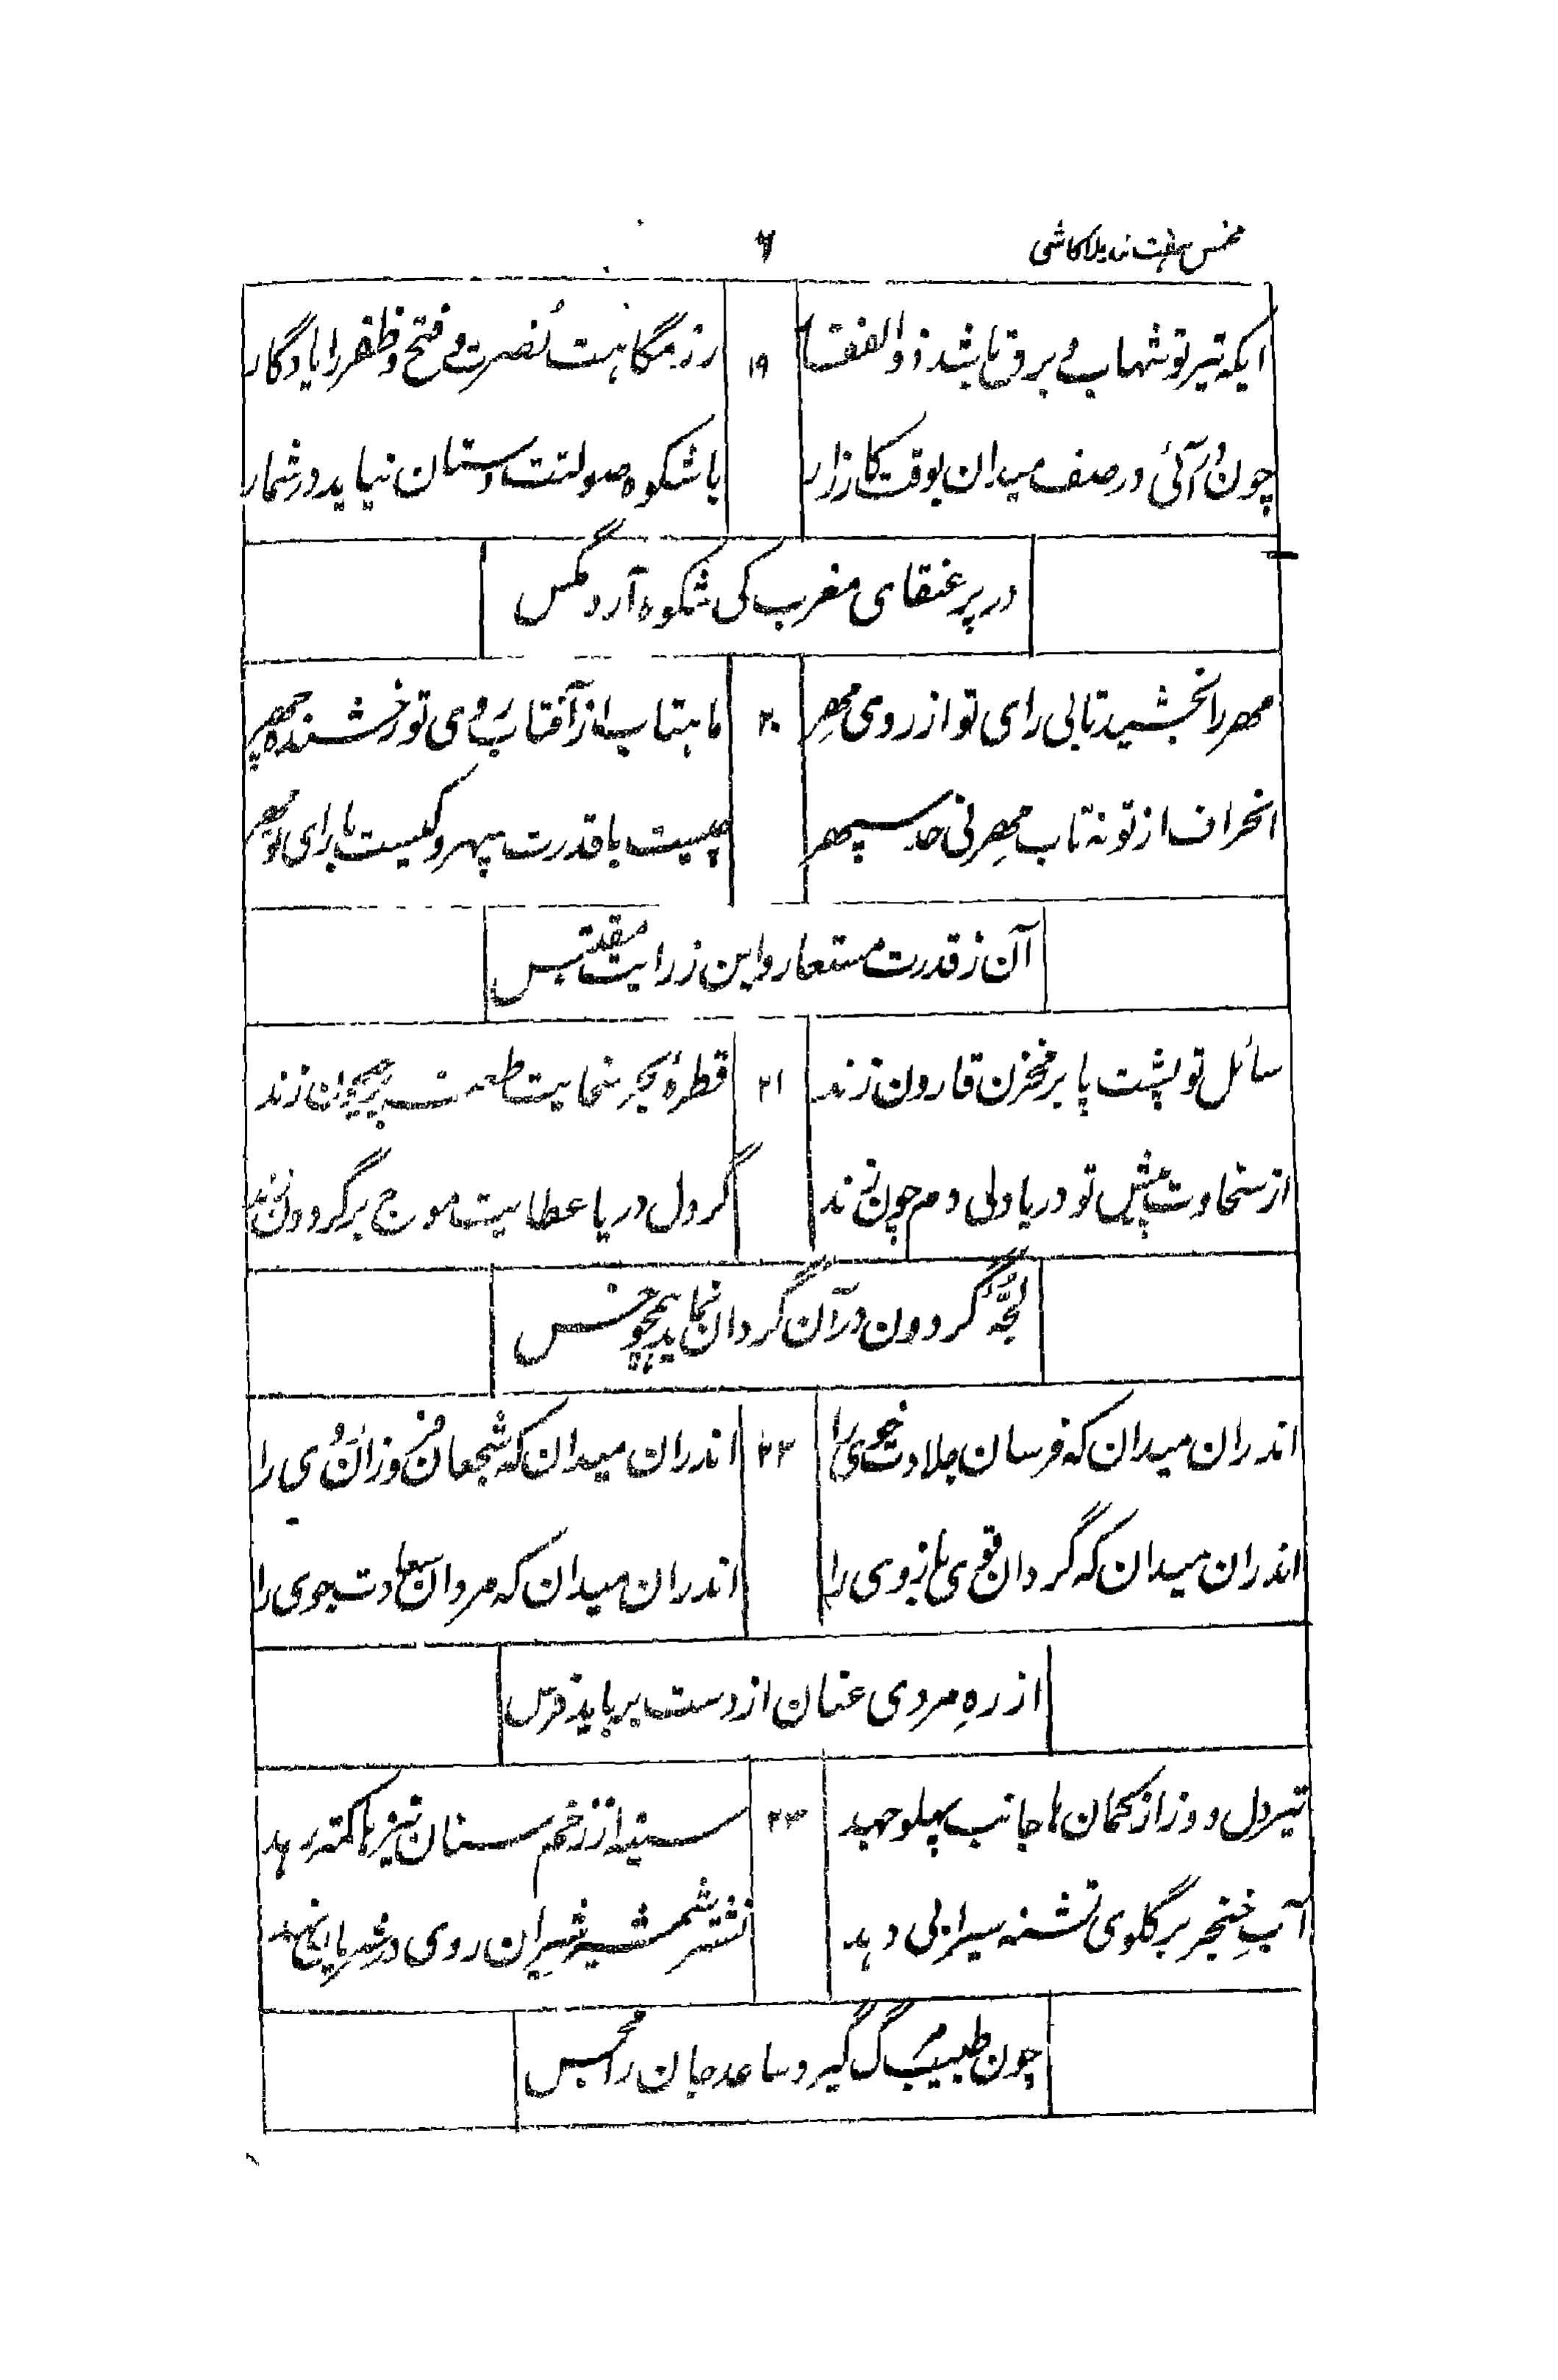 مخمس هفت بند ملا کاشی ٦
ایکه تیر تو شهاب و برق باشد ذوالفقار ١٩ رزمگاهت نصرت و فتح و ظفر را یادگار
چون در آئی در صف میدان بوقت کارزار با شکوه صولتت دستان نیاید در شمار
در پر عنقای مغرب کی شکوه آرد مگس
مهر را بخشید تا بی رای تو از روی مهر ٢٠ ماهتاب از آفتاب روی تو رخشنده چهر
انحراف از تو نه تاب مهر نی حد سپهر چیست با قدرت سپهر و کیست با رای تو مهر
آن ز قدرت مستعار و این ز رایت مقتبس
سائل تو پشت پا بر مخزن قارون زند ٢١ قطرۀ بحر سخایت طعنه بر جیحون زند
از سخاوت پیش تو دریا دلی دم چون زند گر دل دریا عطایت موج بر گردون زند
لجّۀ گردون در آن گردان نماید همچو خس
اندران میدان که فرسان جلادت خوی را ٢٢ اندران میدان که شجعان فروزان روی را
اندران میدان که گردان قوی بازوی را اندران میدان که مردان سعادت جوی را
از رهِ مردی عنان از دست برباید فرس
تیر دل دوز از کمان ها جانب پهلو جهد ٢٣ سینه از زخم سنان نیزها کمتر رهد
آبِ خنجر بر گلوی تشنه سیرابی دهد نشتر شمشیر شیران روی در شریان نهد
چون طبیب مرگ گیرد ساعد جان را مجس